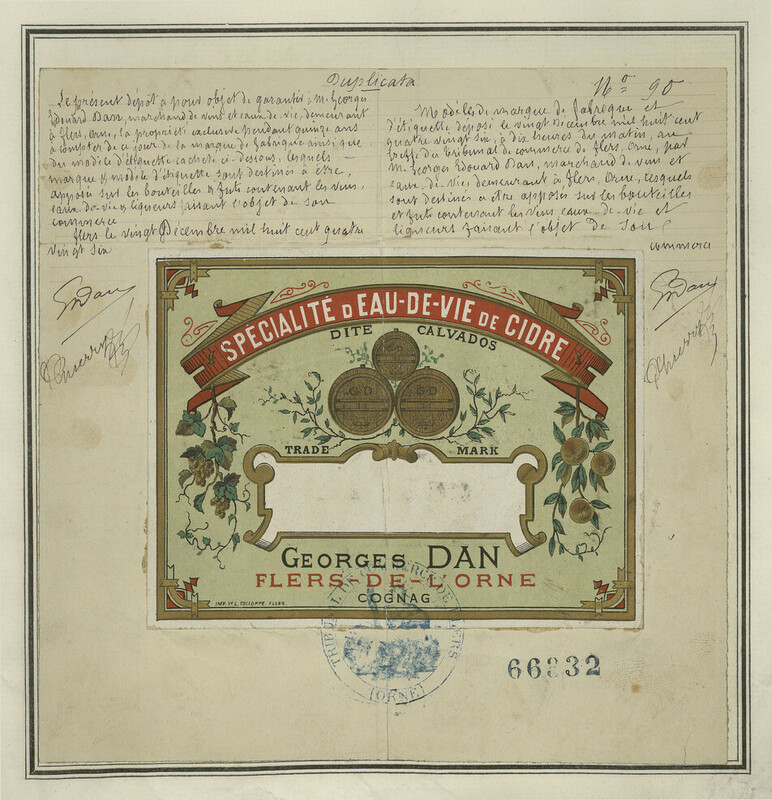 Duplicata
Nº 90
Le présent dépôt a pour objet de garantir, à M. Georges
Edouard Dan, marchand de vins et eaux-de-vie, demeurant
à Flers, Orne, la propriété exclusive pendant quinze ans
à compter de ce jour de la marque de fabrique ainsi que
du modèle d'étiquette cachetés ci-dessous, lesquels
marque & modèle d'étiquette sont destinés à être,
apposés sur les bouteilles & futs contenant les vins,
eaux-de-vie & liqueurs faisant l'objet de son
commerce
Flers le vingt Décembre mil huit cent quatre
vingt six
GDan
Modèles de marque de fabrique et
d'étiquette déposé le vingt décembre mil huit cent
quatre vingt six, à dix heures du matin, au
greffe du tribunal de commerce de Flers, Orne, par
M. Georges Edouard Dan, marchand de vins et
eaux-de-vie, demeurant à Flers, Orne, lesquels
sont destinés à être apposés sur les bouteilles
et futs contenant les vins eaux-de-vie et
liqueurs faisant l'objet de son
commerce
GDan
SPÉCIALITÉ D'EAU-DE-VIE DE CIDRE
DITE CALVADOS
G D
G D
TRADE MARK
GEORGES DAN
FLERS-DE-L'ORNE
COGNAC
IMP. VE L. FOLLOPPE. FLERS.
TRIBUNAL DE COMMERCE DE FLERS
(ORNE)
66332